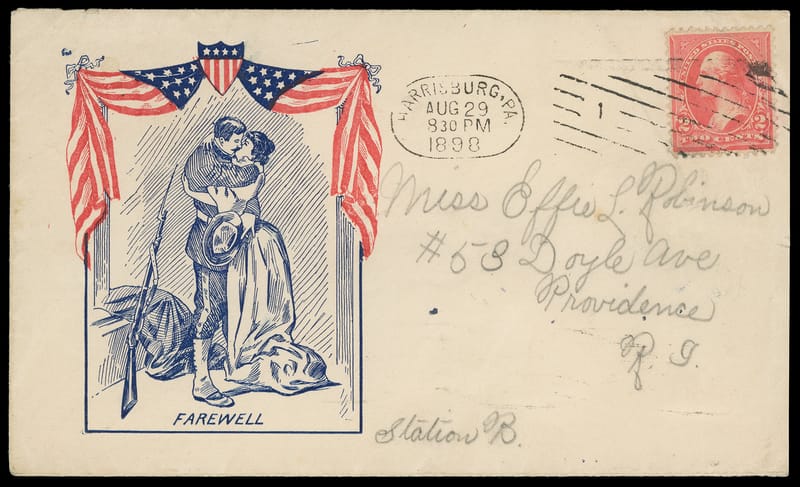 HARRISBURG, PA.
AUG 29
8 30 PM
1898
1
UNITED STATES POSTAGE
2 2
TWO CENTS
Miss Effie L. Robinson
#53 Doyle Ave
Providence
R. I.
Station B.
FAREWELL